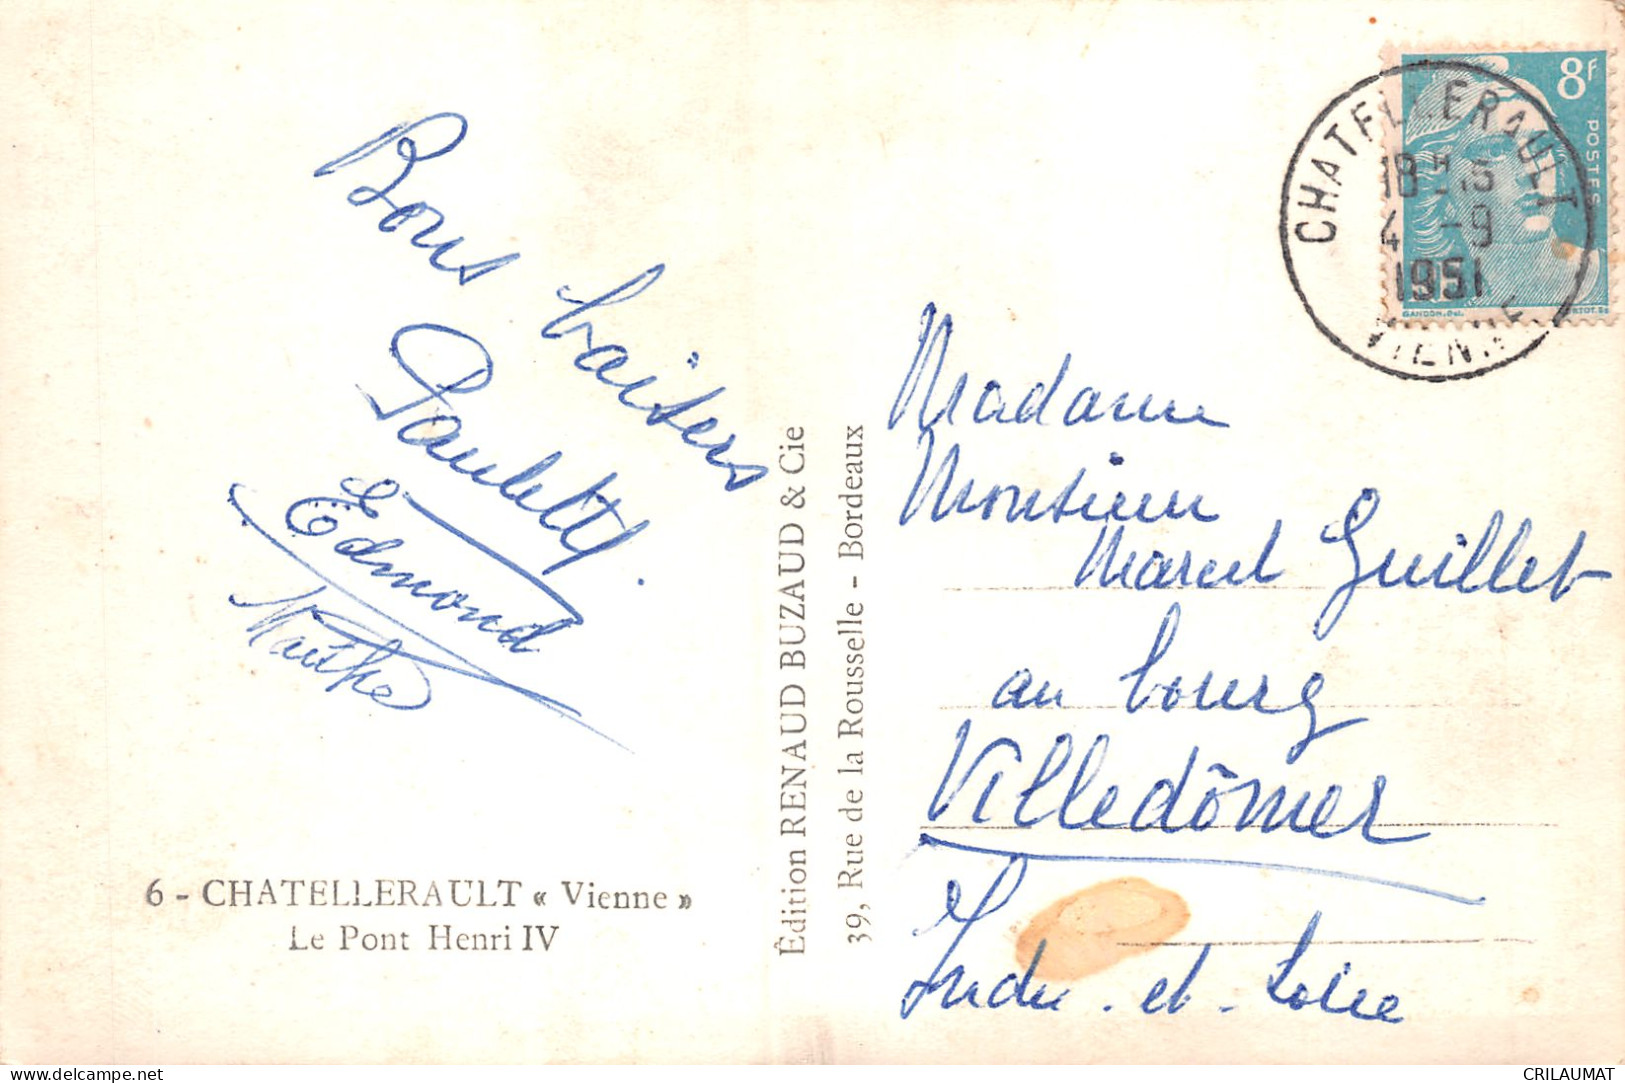 Bons baisers
Paulette.
Edmond
Marthe
6 - CHATELLERAULT « Vienne »
Le Pont Henri IV
Édition RENAUD BUZAUD & Cie
39, Rue de la Rousselle - Bordeaux
8F
POSTES
GANDON.Del.
CHATELLERAULT
18
4 -9
1951
VIENNE
Madame
Monsieur
Marcel Guillet
au bourg
Villedômer
Indre-et-Loire
CRILAUMAT